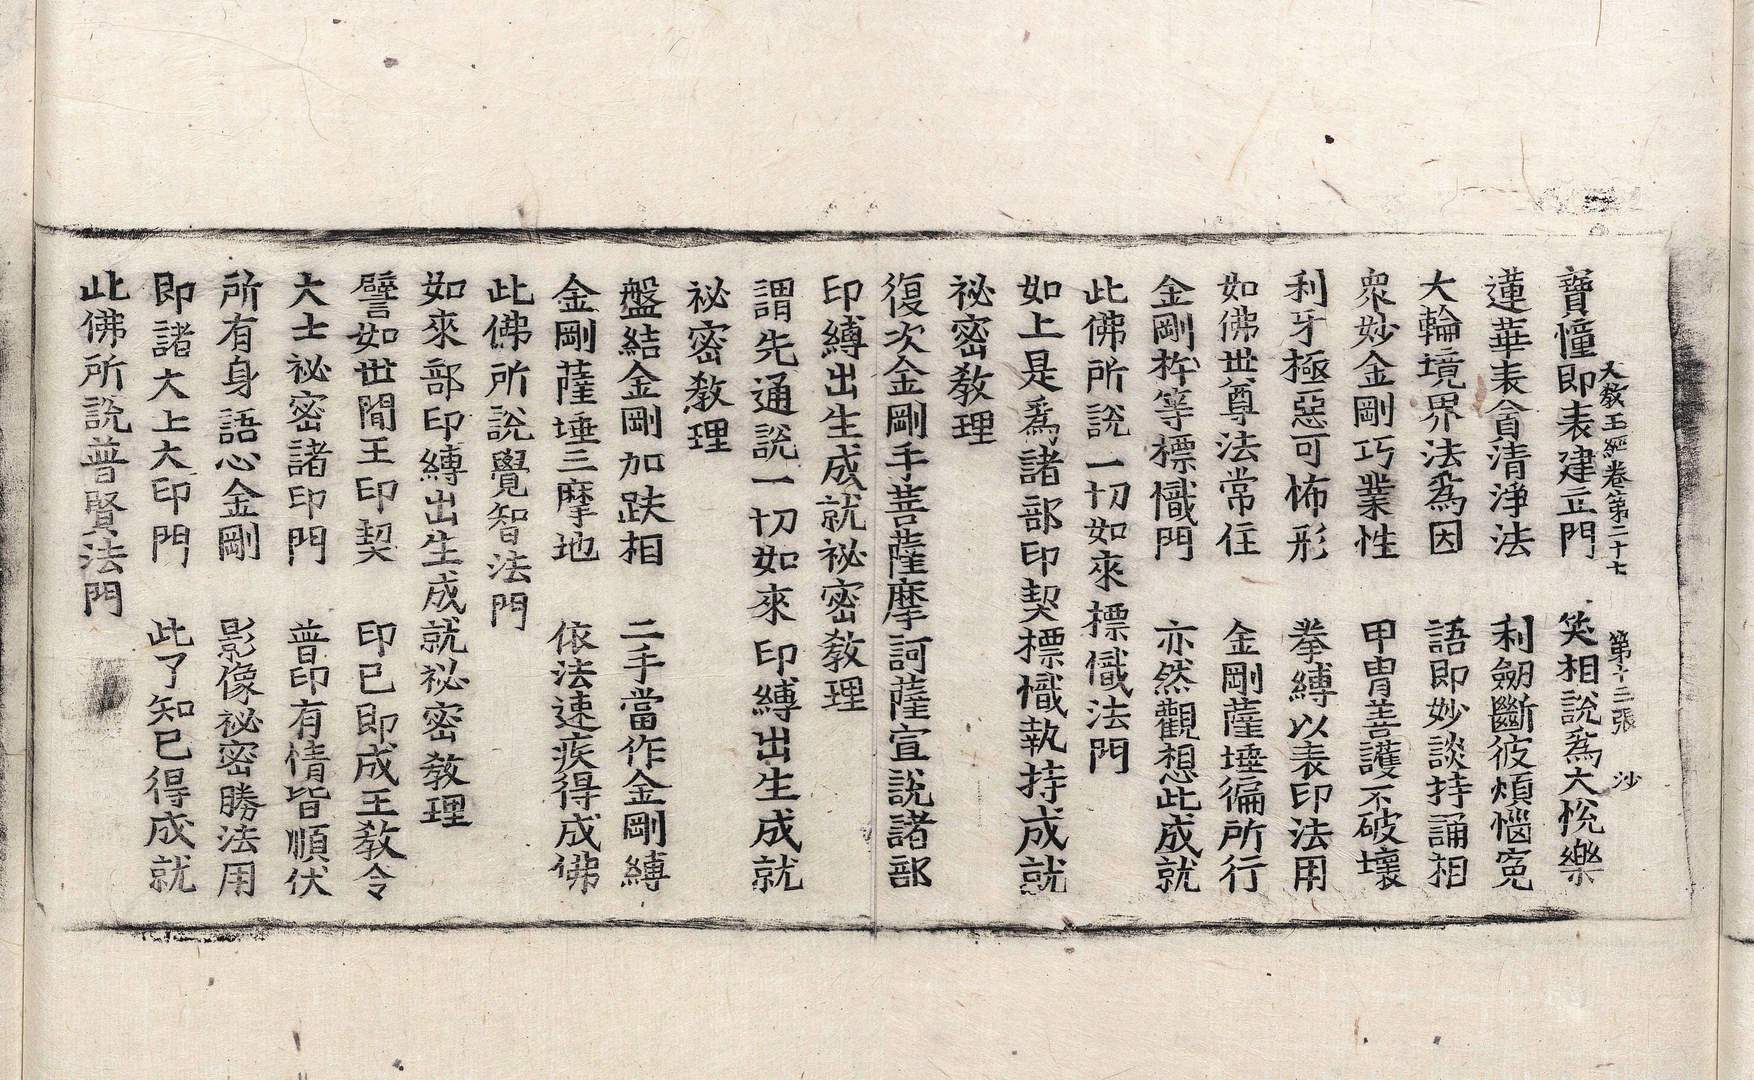 大教王經卷第二十七 第十三張 沙
寶幢即表建立門 笑相說爲大悅樂
蓮華表會清淨法 利劒斷彼煩惱寃
大輪境界法爲因 語即妙談持誦相
衆妙金剛巧業性 甲冑善護不破壞
利牙極惡可怖形 拳縛以表印法用
如佛世尊法常住 金剛薩埵徧所行
金剛杵等摽幟門 亦然觀想此成就
此佛所說一切如來摽幟法門
如上是爲諸部印契摽幟執持成就
祕密教理
復次金剛手菩薩摩訶薩宣說諸部
印縛出生成就祕密教理
謂先通說一切如來印縛出生成就
祕密教理
盤結金剛加趺相 二手當作金剛縛
金剛薩埵三摩地 依法速疾得成佛
此佛所說覺智法門
如來部印縛出生成就祕密教理
譬如世間王印契 印已即成王教令
大士祕密諸印門 普印有情皆順伏
所有身語心金剛 影像祕密勝法用
即諸大上大印門 此了知已得成就
此佛所說普賢法門